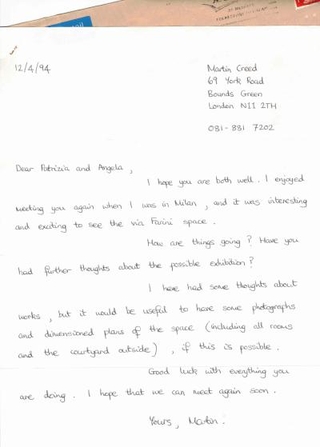 12/4/94
Martin Creed
69 York Road
Bounds Green
London N11 2TH
081-881 7202
Dear Patrizia and Angela,
I hope you are both well. I enjoyed
meeting you again when I was in Milan, and it was interesting
and exciting to see the via Farini space.
How are things going? Have you
had further thoughts about the possible exhibition?
I have had some thoughts about
works, but it would be useful to have some photographs
and dimensioned plans of the space (including all rooms
and the courtyard outside), if this is possible.
Good luck with everything you
are doing. I hope that we can meet again soon.
Yours, Martin.